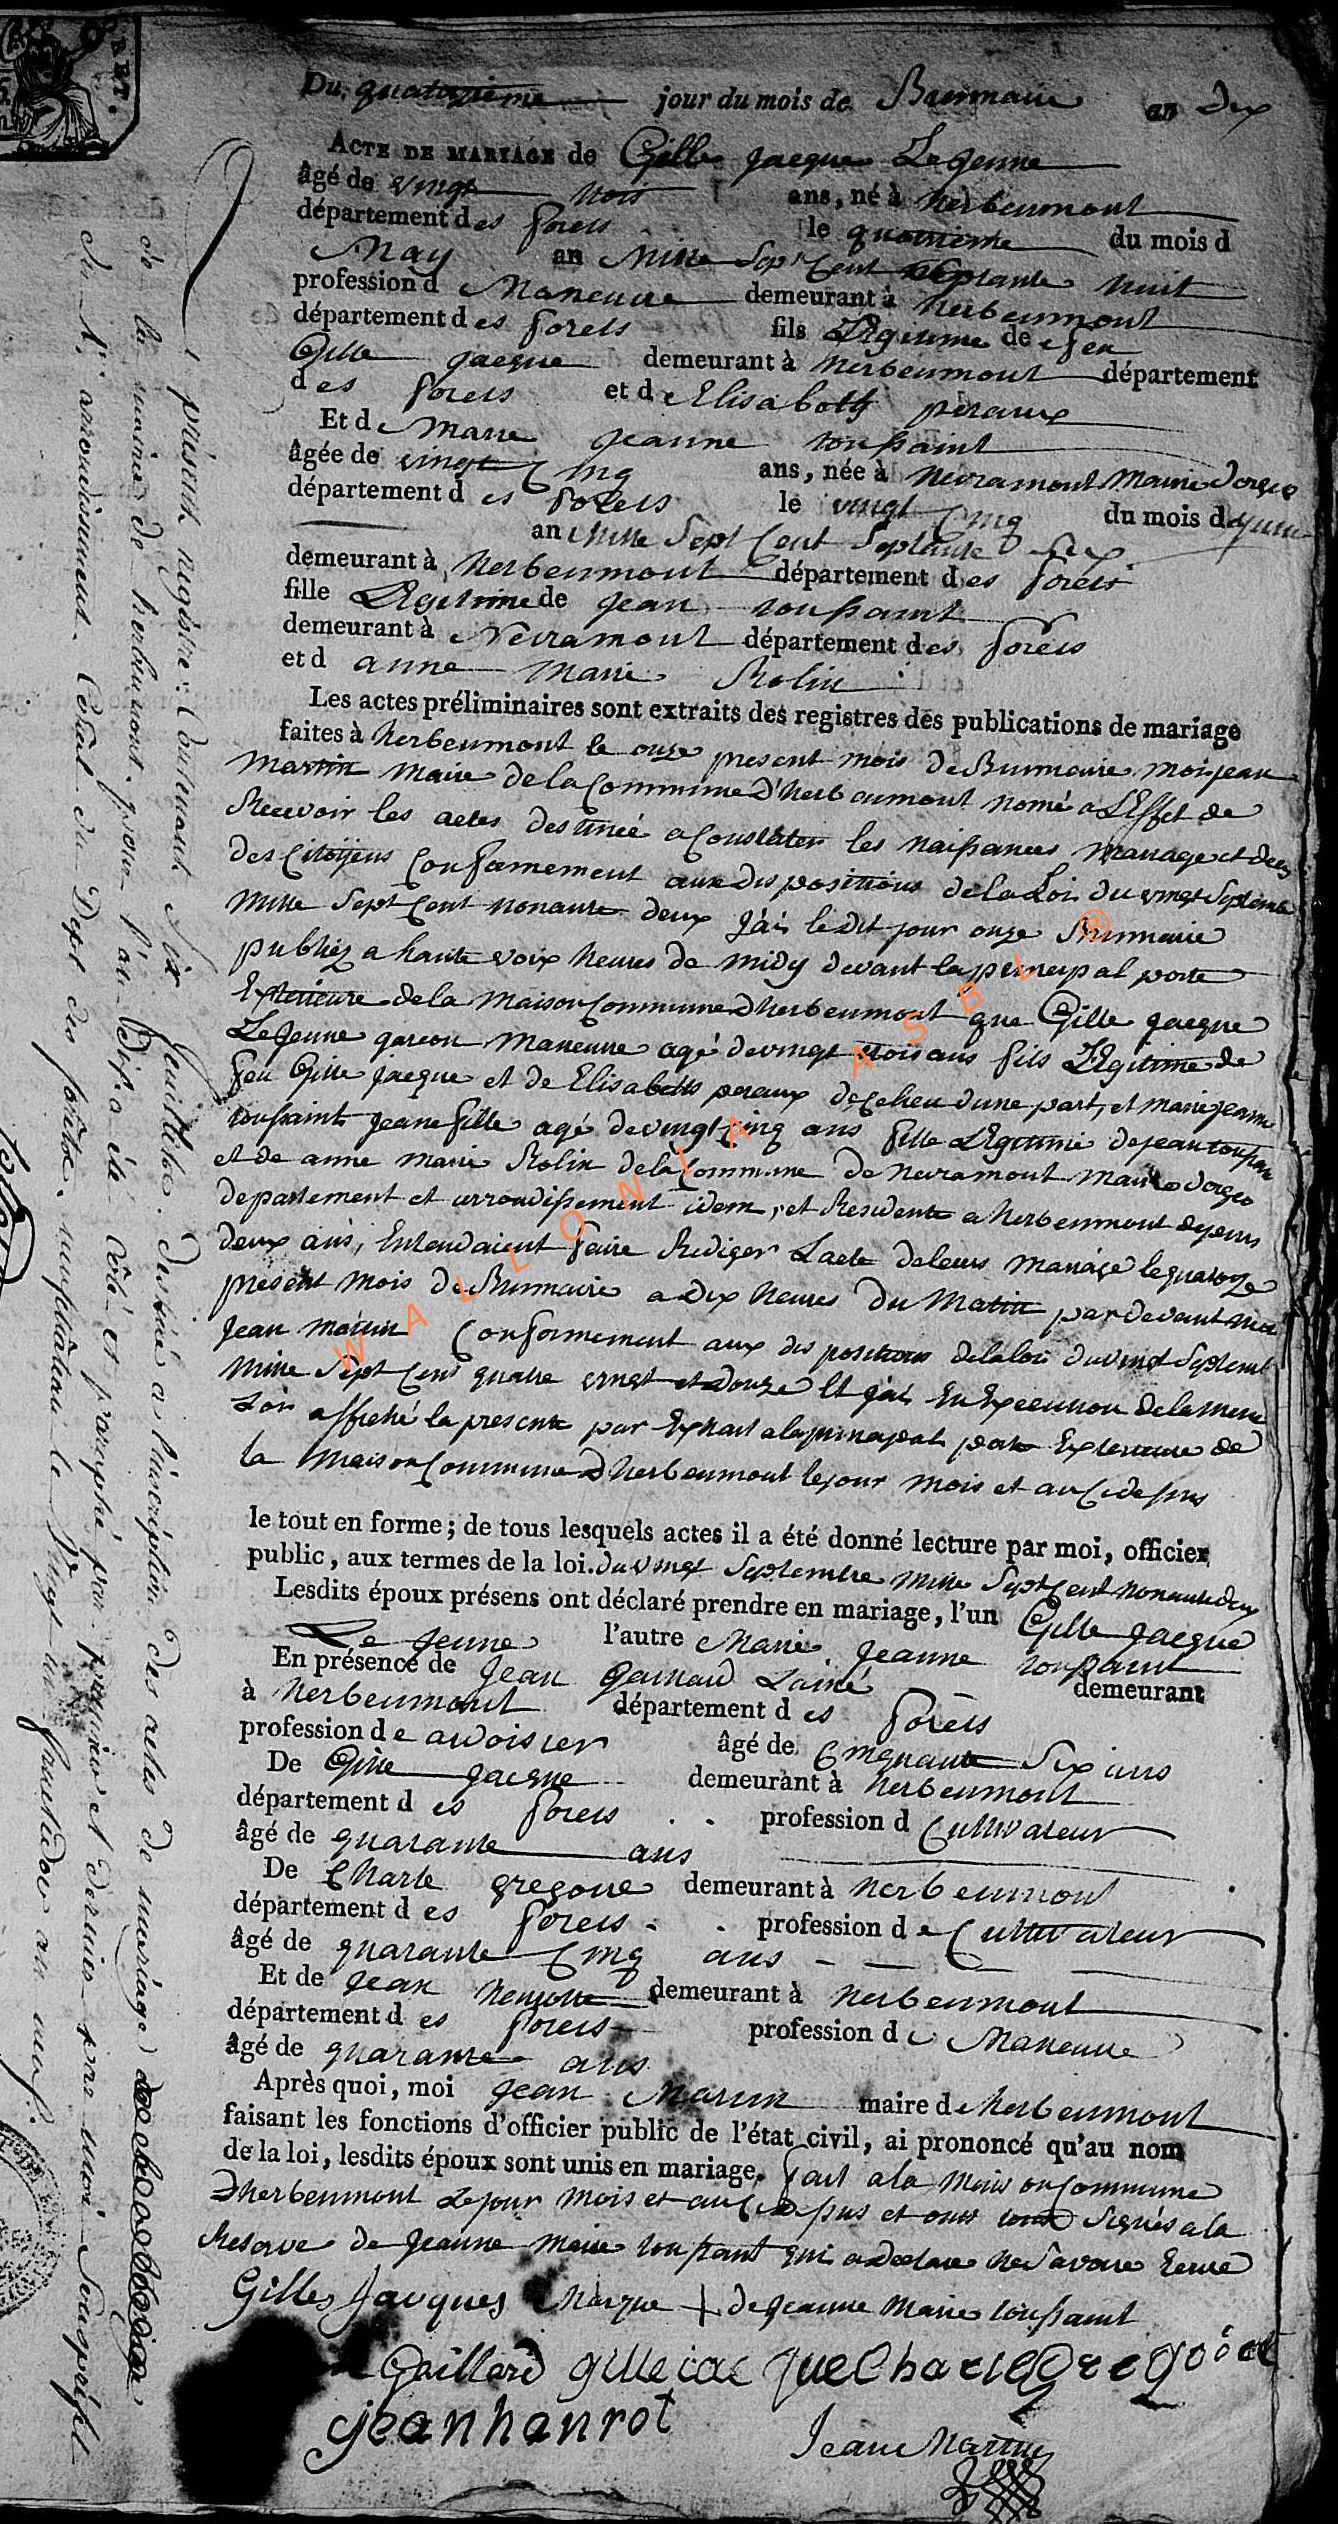 Du quatorzieme jour du mois de Brumaire an dix
ACTE DE MARIAGE de Gille Jacque Le Jeune
âgé de vingt trois ans, né à herbeumont
département des forets le quatrieme du mois d
May an Mille Sept Cent Septante huit
profession d Maneuvre demeurant à herbeumont
département des forets fils LEgitime de feu
Gille Jacque demeurant à herbeumont département
des forets et d Elisabeth peraux
Et d Marie Jeanne toussaint
âgée de vingt Cinq ans, née à Nevramont Mairie dorgeo
département des forets le vingt Cinq du mois d
an Mille Sept Cent Septante Six
demeurant à herbeumont département des forets
fille LEgitime de Jean toussaint
demeurant à Nevramont département des forets
et d anne Marie Rolin
Les actes préliminaires sont extraits des registres des publications de mariage
faites à herbeumont le onze present mois de Brumaire, moi jean
Martin Maire de la Commune d'herbeumont nomé a LEffet de
Recevoir les actes destinée a Constater les naissances Mariage et deces
des Citoÿens Conformement aux dispositions de la Loi du vingt Septembre
Mille Sept Cent nonante deux J'ai ledit jour onze Brumaire
publiez a haute voix heures de midy devant la principal porte
Exterieure de la Maison Commune dherbeumont que Gille Jacque
LeJeune garcon Maneuvre agé de vingt trois ans fils LEgitime de
feu Gille Jacque et de Elisabeth peraux de ce lieu dune part, et Marie jeanne
toussaint Jeune fille agé de vingt Cinq ans fille LEgitime de jean toussaint
et de anne Marie Rolin de la Commune de Nevramont Mairie dorgeo
departement et arrondissement idem, et Residente a herbeumont depuis
deux ans, Entendaient faire Rediger Lacte de leurs Mariage le quatorze
present Mois de Brumaire a dix heures du Matin par devant moi
Jean Martin Conformement aux dispositions de la loi du vingt Septembre
Mille Sept Cent quatre vingt et Douze Et j'ai En Execution de la meme
Loi affiché la presente par Extrait a la principal porte Exterieure de
la Maison Commune dherbeumont le jour mois et an Cidessus
le tout en forme; de tous lesquels actes il a été donné lecture par moi, officier
public, aux termes de la loi. du vingt Septembre Mille Sept Cent nonante deux
Lesdits époux présens ont déclaré prendre en mariage, l'un Gille Jacque
Le Jeune l'autre Marie Jeanne toussaint
En présence de Jean Lainé demeurant
à herbeumont département des forets
profession de ardoisier âgé de Cinquante Six ans
De Gille Jacque demeurant à herbeumont
département des forets profession d Cultivateur
âgé de quarante ans
De Charle gregoire demeurant à herbeumont
département des forets profession de Cultivateur
âgé de quarante Cinq ans
Et de Jean demeurant à herbeumont
département des forets profession de Maneuvre
âgé de quarante ans
Après quoi, moi Jean Martin maire d herbeumont
faisant les fonctions d'officier public de l'état civil, ai prononcé qu'au nom
de la loi, lesdits époux sont unis en mariage. fait a la Maison Commune
Dherbeumont Lejour Mois et an Cidessus et ont tous Signés a la
Reserve de Jeanne Marie toussaint qui a declaré ne Savoire Ecrire
Gilles Jacques Marque + de Jeanne Marie toussaint
Gaillard gille iac que Charle Gregoire
jean hanrot
Jean Martin
présent registre: Contenant Six feuillets. destiné a l'inscription des actes de mariage
de la mairie de herbeumont. pour l'an dix. a été côté et paraphé par premier et dernier par nous Sousprefet
WALLONIA ASBL ®